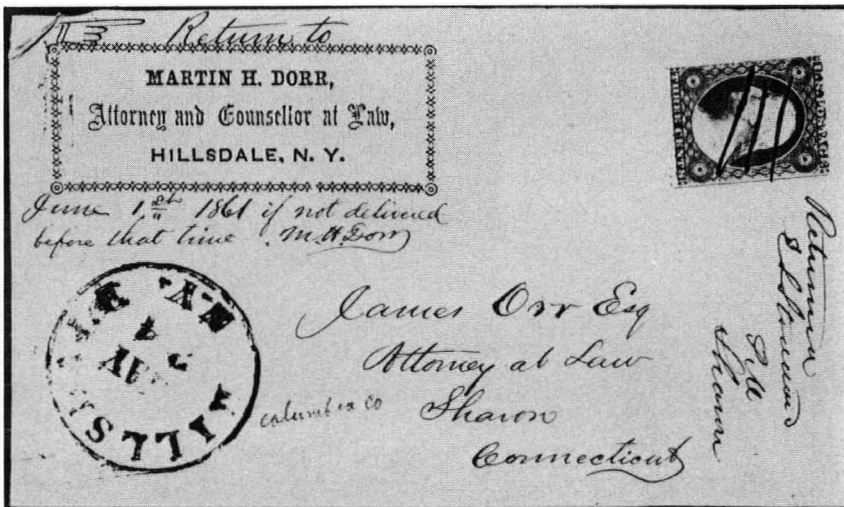 Return to
MARTIN H. DORR,
Attorney and Counsellor at Law,
HILLSDALE, N. Y.
June 1st 1861 if not delivered
before that time. M.H. Dorr
James Orr Esq
Attorney at Law
Sharon
Connecticut
columbia co
N.Y.
24
P M
Sharon